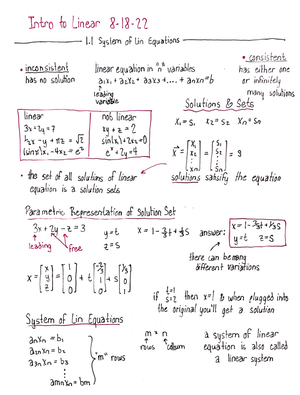 Intro to Linear 8-18-22
1.1 System of Lin Equations
• inconsistent
has no solution
linear equation in "n" variables
a₁x₁ + a₂x₂ + a₃x₃ + ... + aₙxₙ = b
leading
variable
• consistent
has either one
or infinitely
many solutions
linear
3x + 2y = 7
½x - y + πz = √2
(sin π)x₁ - 4x₂ = e²
not linear
xy + z = 2
sin(x) + 2x₂ = 0
eˣ + 2y = 4
Solutions & Sets
x₁ = S₁ x₂ = S₂ xₙ = Sₙ
x = [x₁ x₂ ⋮ xₙ] = [S₁ S₂ ⋮ Sₙ] = S
solutions satisfy the equation
• the set of all solutions of linear
equation is a solution sets
Parametric Representation of Solution Set
3x + 2y - z = 3
leading free
y = t
z = s
x = 1 - ⅔t + ⅓s
answer:
x = 1 - ⅔t + ⅓s
y = t z = s
there can be many
different variations
x = [x y z] = [1 0 0] + t [-⅔ 1 0] + s [⅓ 0 1]
if t=1 s=2 then x=1 & when plugged into
the original you'll get a solution
System of Lin Equations
"m" rows
m × n
rows column
a system of linear
equation is also called
a linear system